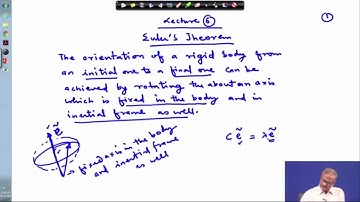 Lecture 6
①
Euler's Theorem
The orientation of a rigid body from
an initial one to a final one can be
achieved by rotating the about an axis
which is fixed in the body and in
inertial frame as well.
ẽ
fixed axis in the body
and inertial frame
as well
C ẽ = λ ẽ